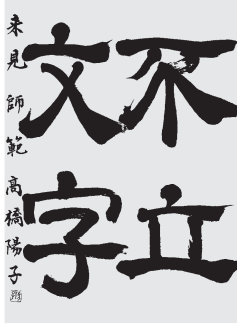 不立
文字
来見師範 高橋陽子